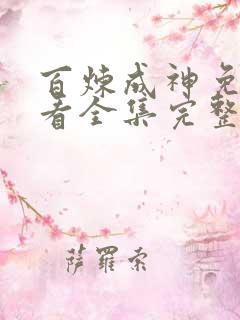 百炼成神免
看全集完整
萨罗索